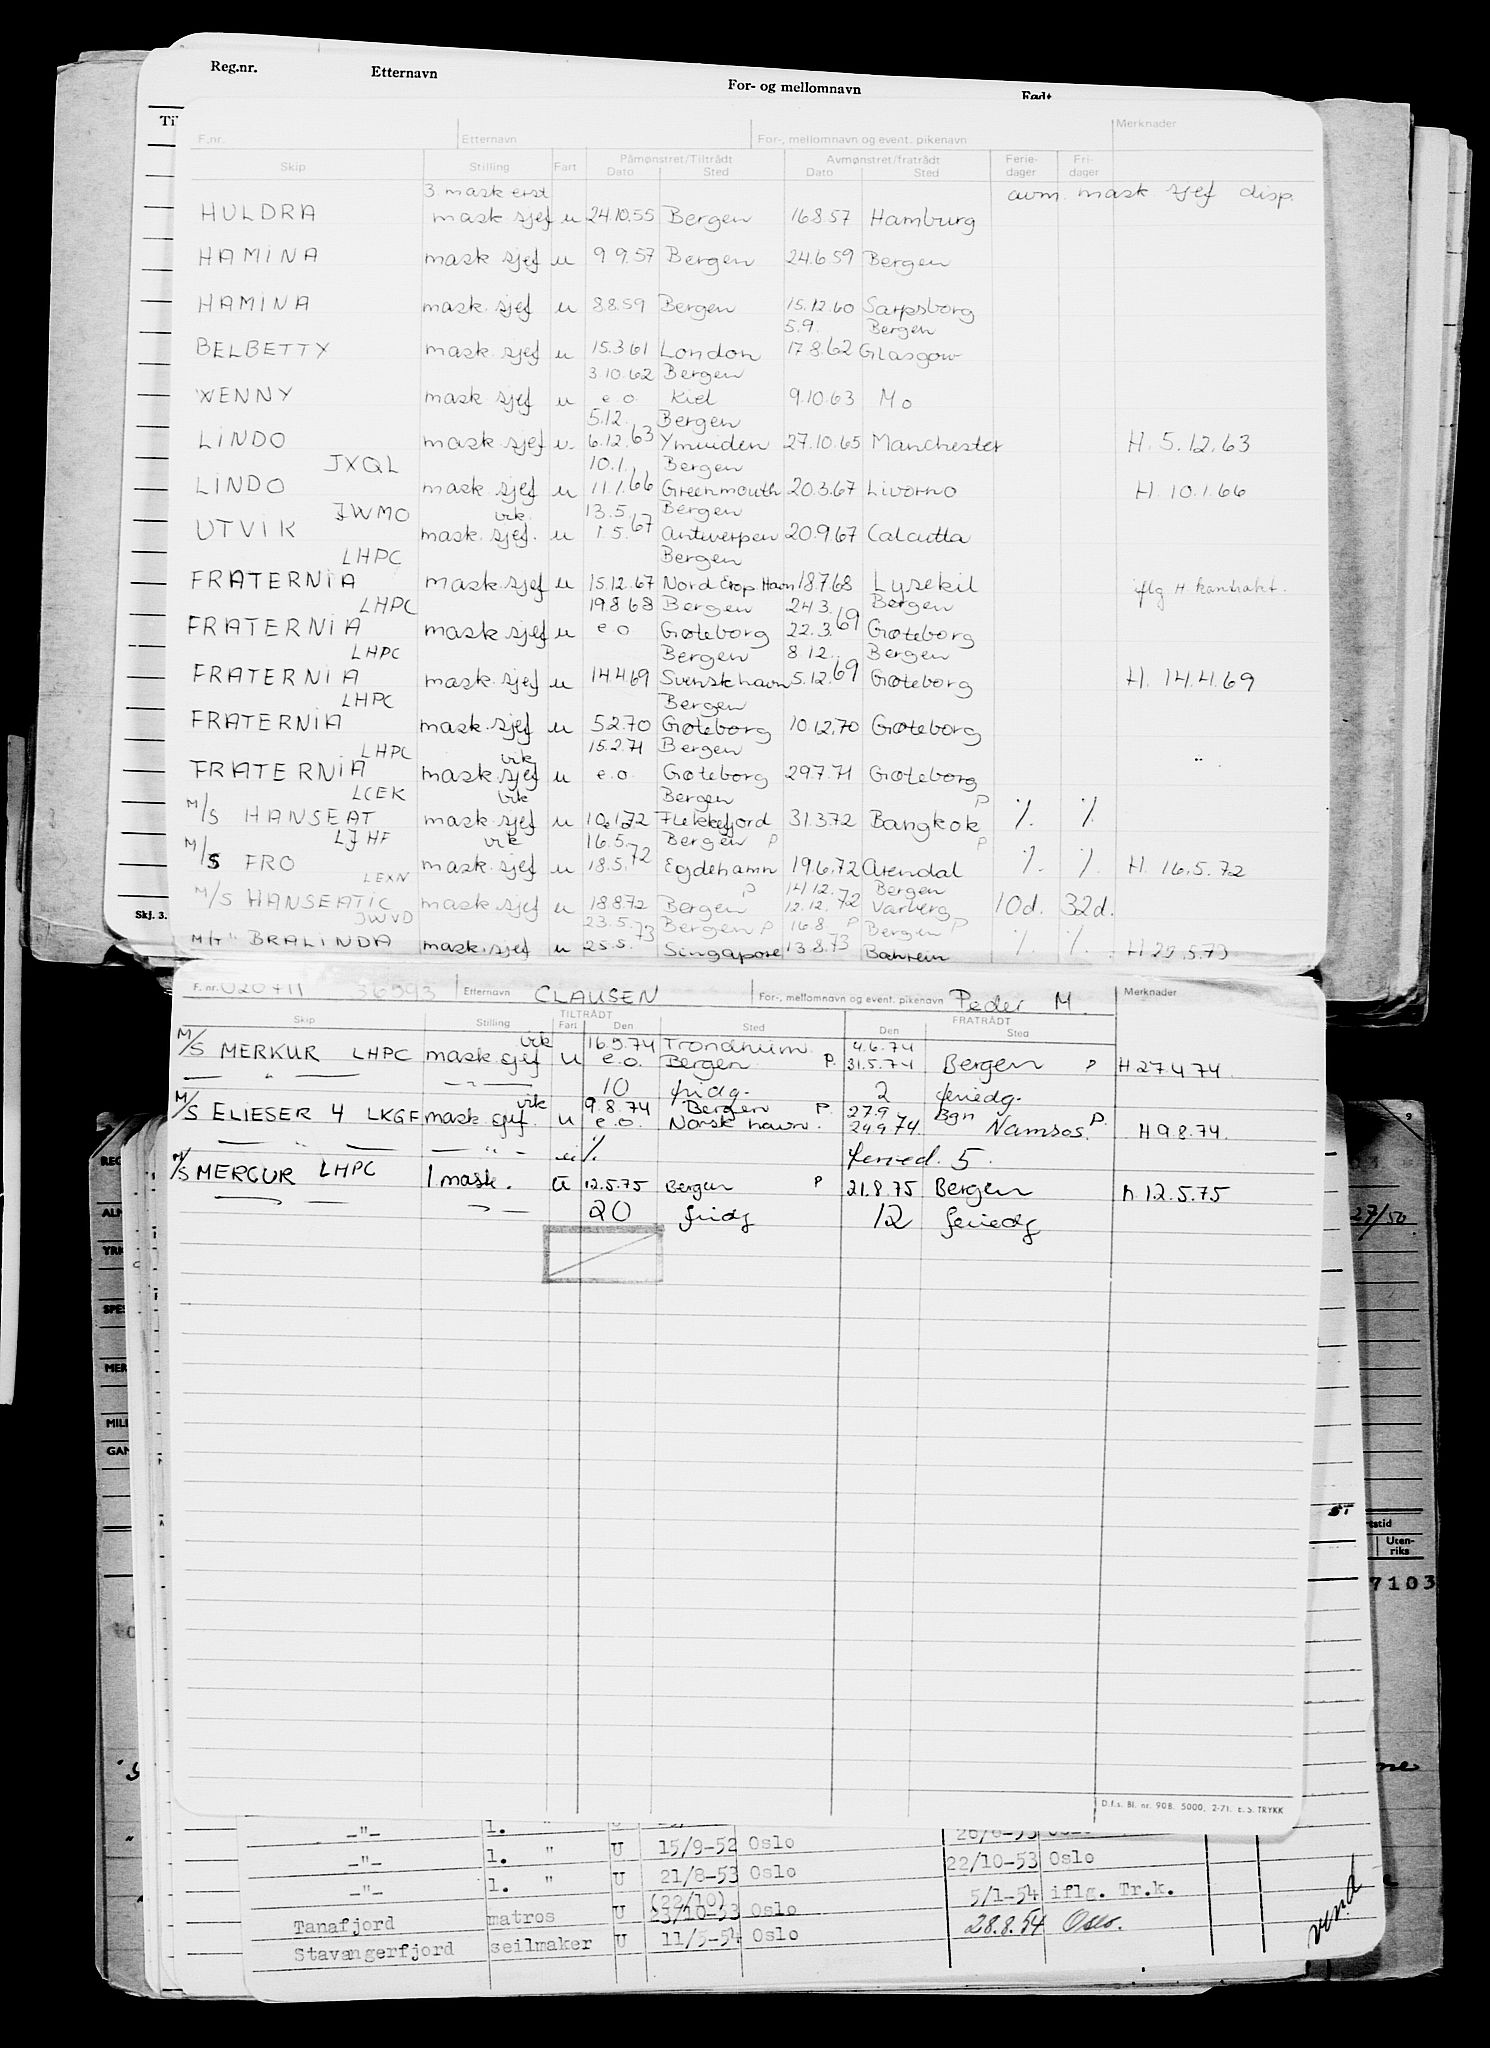 Reg.nr. Etternavn For- og mellomnavn Født
F.nr. Etternavn For-, mellomnavn og event. pikenavn Merknader
Skip Stilling Fart Påmønstret/Tiltrådt Avmønstret/fratrådt Ferie-dager Fri-dager
Dato Sted Dato Sted
3 mask erst avm. mask sjef disp.
HULDRA mask sjef u 24.10.55 Bergen 16.8.57 Hamburg
HAMINA mask sjef u 9.9.57 Bergen 24.6.59 Bergen
HAMINA mask. sjef u 8.8.59 Bergen 15.12.60 Sarpsborg
5.9. Bergen
BELBETTY mask. sjef u 15.3.61 London 17.8.62 Glasgow
3.10.62 Bergen
WENNY mask sjef u e.o. Kiel 9.10.63 Mo
5.12. Bergen
LINDO mask. sjef u. 6.12.63 Ymuiden 27.10.65 Manchester H. 5.12.63
JXQL 10.1. Bergen
LINDO mask sjef u 11.1.66 Greenmouth 20.3.67 Livorno H. 10.1.66
JWMO vik. 13.5. Bergen
UTVIK mask. sjef. u 1.5.67 Antwerpen 20.9.67 Calcutta
LHPC Bergen
FRATERNIA mask. sjef u 15.12.67 Nord Erop Havn 18.7.68 Lysekil iflg H kontrakt.
LHPC 19.8.68 Bergen 24.3. Bergen
FRATERNIA mask sjef u e.o. Gøteborg 22.3.69 Gøteborg
LHPC Bergen 8.12. Bergen
FRATERNIA mask. sjef u 14.4.69 Svensk havn 5.12.69 Gøteborg H. 14.4.69
LHPC Bergen
FRATERNIA mask. sjef u 5.2.70 Gøteborg 10.12.70 Gøteborg
LHPC vik 15.2.71 Bergen
FRATERNIA mask sjef u e.o. Gøteborg 29.7.71 Gøteborg
LCEK vik Bergen P
M/S HANSEAT mask. sjef u 10.1.72 Flekkefjord 31.3.72 Bangkok ٪. ٪.
LJHF vik 16.5. Bergen P P
M/S FRO mask. sjef u 18.5.72 Eydehamn 19.6.72 Arendal ٪. ٪. H. 16.5.72
LEXN P 14.12. Bergen
M/S HANSEATIC mask. sjef u 18.8.72 Bergen 12.12.72 Varberg 10d. 32d.
JWVD 23.5. Bergen P 16.8. P Bergen P
M/T " BRALINDA mask. sjef u 25.5.73 Singapore 13.8.73 Bahrein ٪. ٪. H 23.5.73
Skj. 3.
F. nr. 020711 36593 Etternavn CLAUSEN For-, mellomnavn og event. pikenavn Peder M. Merknader
Skip Stilling TILTRÅDT FRATRÅDT
Fart Den Sted Den Sted
vik 16.5.74 Trondheim 4.6.74
M/S MERKUR LHPC mask sjef u e.o. Bergen P. 31.5.74 Bergen P H 27.4.74.
— " — — " — 10 fridg. 2 feriedg.
vik 9.8.74 Bergen P. 27.9 Bgn P.
M/S ELIESER 4 LKGF mask sjef. u e.o. Norsk havn. 24.9.74 Namsos. H 9.8.74.
— " — — " — u ٪. feried. 5.
M/S MERCUR LHPC 1 mask. u 12.5.75 Bergen P 21.8.75 Bergen h. 12.5.75
— " — — " — 20 fridg 12 feriedg
27/50
REG
YRK
SPES
MER
MILI
GAN
Uten-riks
7103
D.f.s. Bl. nr. 90B. 5000, 2-71. E. S. TRYKK
—"— 1. "
—"— 1. " U 15/9-52 Oslo
—"— 1. " U 21/8-53 Oslo 22/10-53 Oslo
(22/10) 5/1-54 iflg. Tr.k.
Tanafjord matros U 23/10-53 Oslo
Stavangerfjord seilmaker U 11/5-54 Oslo 28.8.54 Oslo.
vend